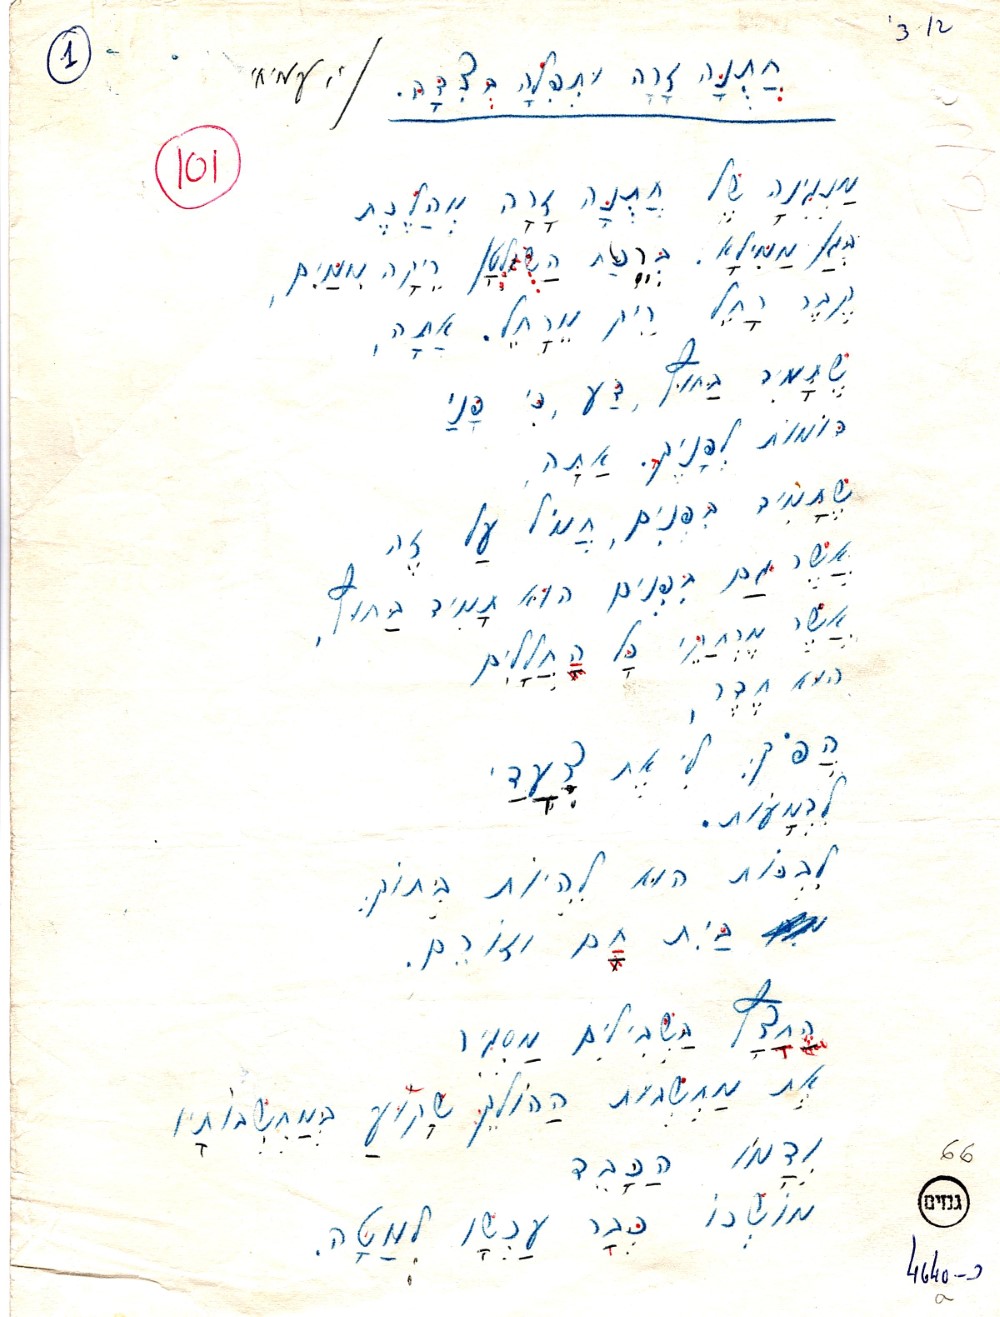 1
3.12'
חֲתֻנָּה זָרָה וּתְפִלָּה בְּצִדָּהּ. / י' עמיחי
101
מַנְגִּינָה שֶׁל חֲתֻנָּה זָרָה מְהַלֶּכֶת
בְּגַן מַמִּילָא. בְּרֵכַת הַשֻּׂלְטָן רֵיקָה מִמַּיִם,
קֶבֶר רָחֵל רֵיק מֵרָחֵל. אַתָּה,
שֶׁתָּמִיד בַּחוּץ, דַּע, כִּי פָּנַי
דּוֹמוֹת לְפָנֶיךָ. אַתָּה,
שֶׁתָּמִיד בִּפְנִים, חֲמֹל עַל זֶה
אֲשֶׁר גַּם בִּפְנִים הוּא תָּמִיד בַּחוּץ,
אֲשֶׁר מֶרְחַקֵּי כָּל הַחֲלָלִים
הוּא חֶדֶר,
הֲפֹךְ לִי אֶת צְעָדַי
לִדְמָעוֹת.
לִבְכּוֹת הוּא לִהְיוֹת בְּתוֹךְ
בַּיִת חַם וְזוֹרֵם.
הֶחָצָץ בַּשְּׁבִילִים מַסְגִּיר
אֶת מַחְשְׁבוֹת הַהוֹלֵךְ שָׁקוּעַ בְּמַחְשְׁבוֹתָיו
וְדָמוֹ הַכָּבֵד
מוֹשְׁכוֹ כְּבָר עַכְשָׁו לְמַטָּה.
66
גנזים
כ-4640
a